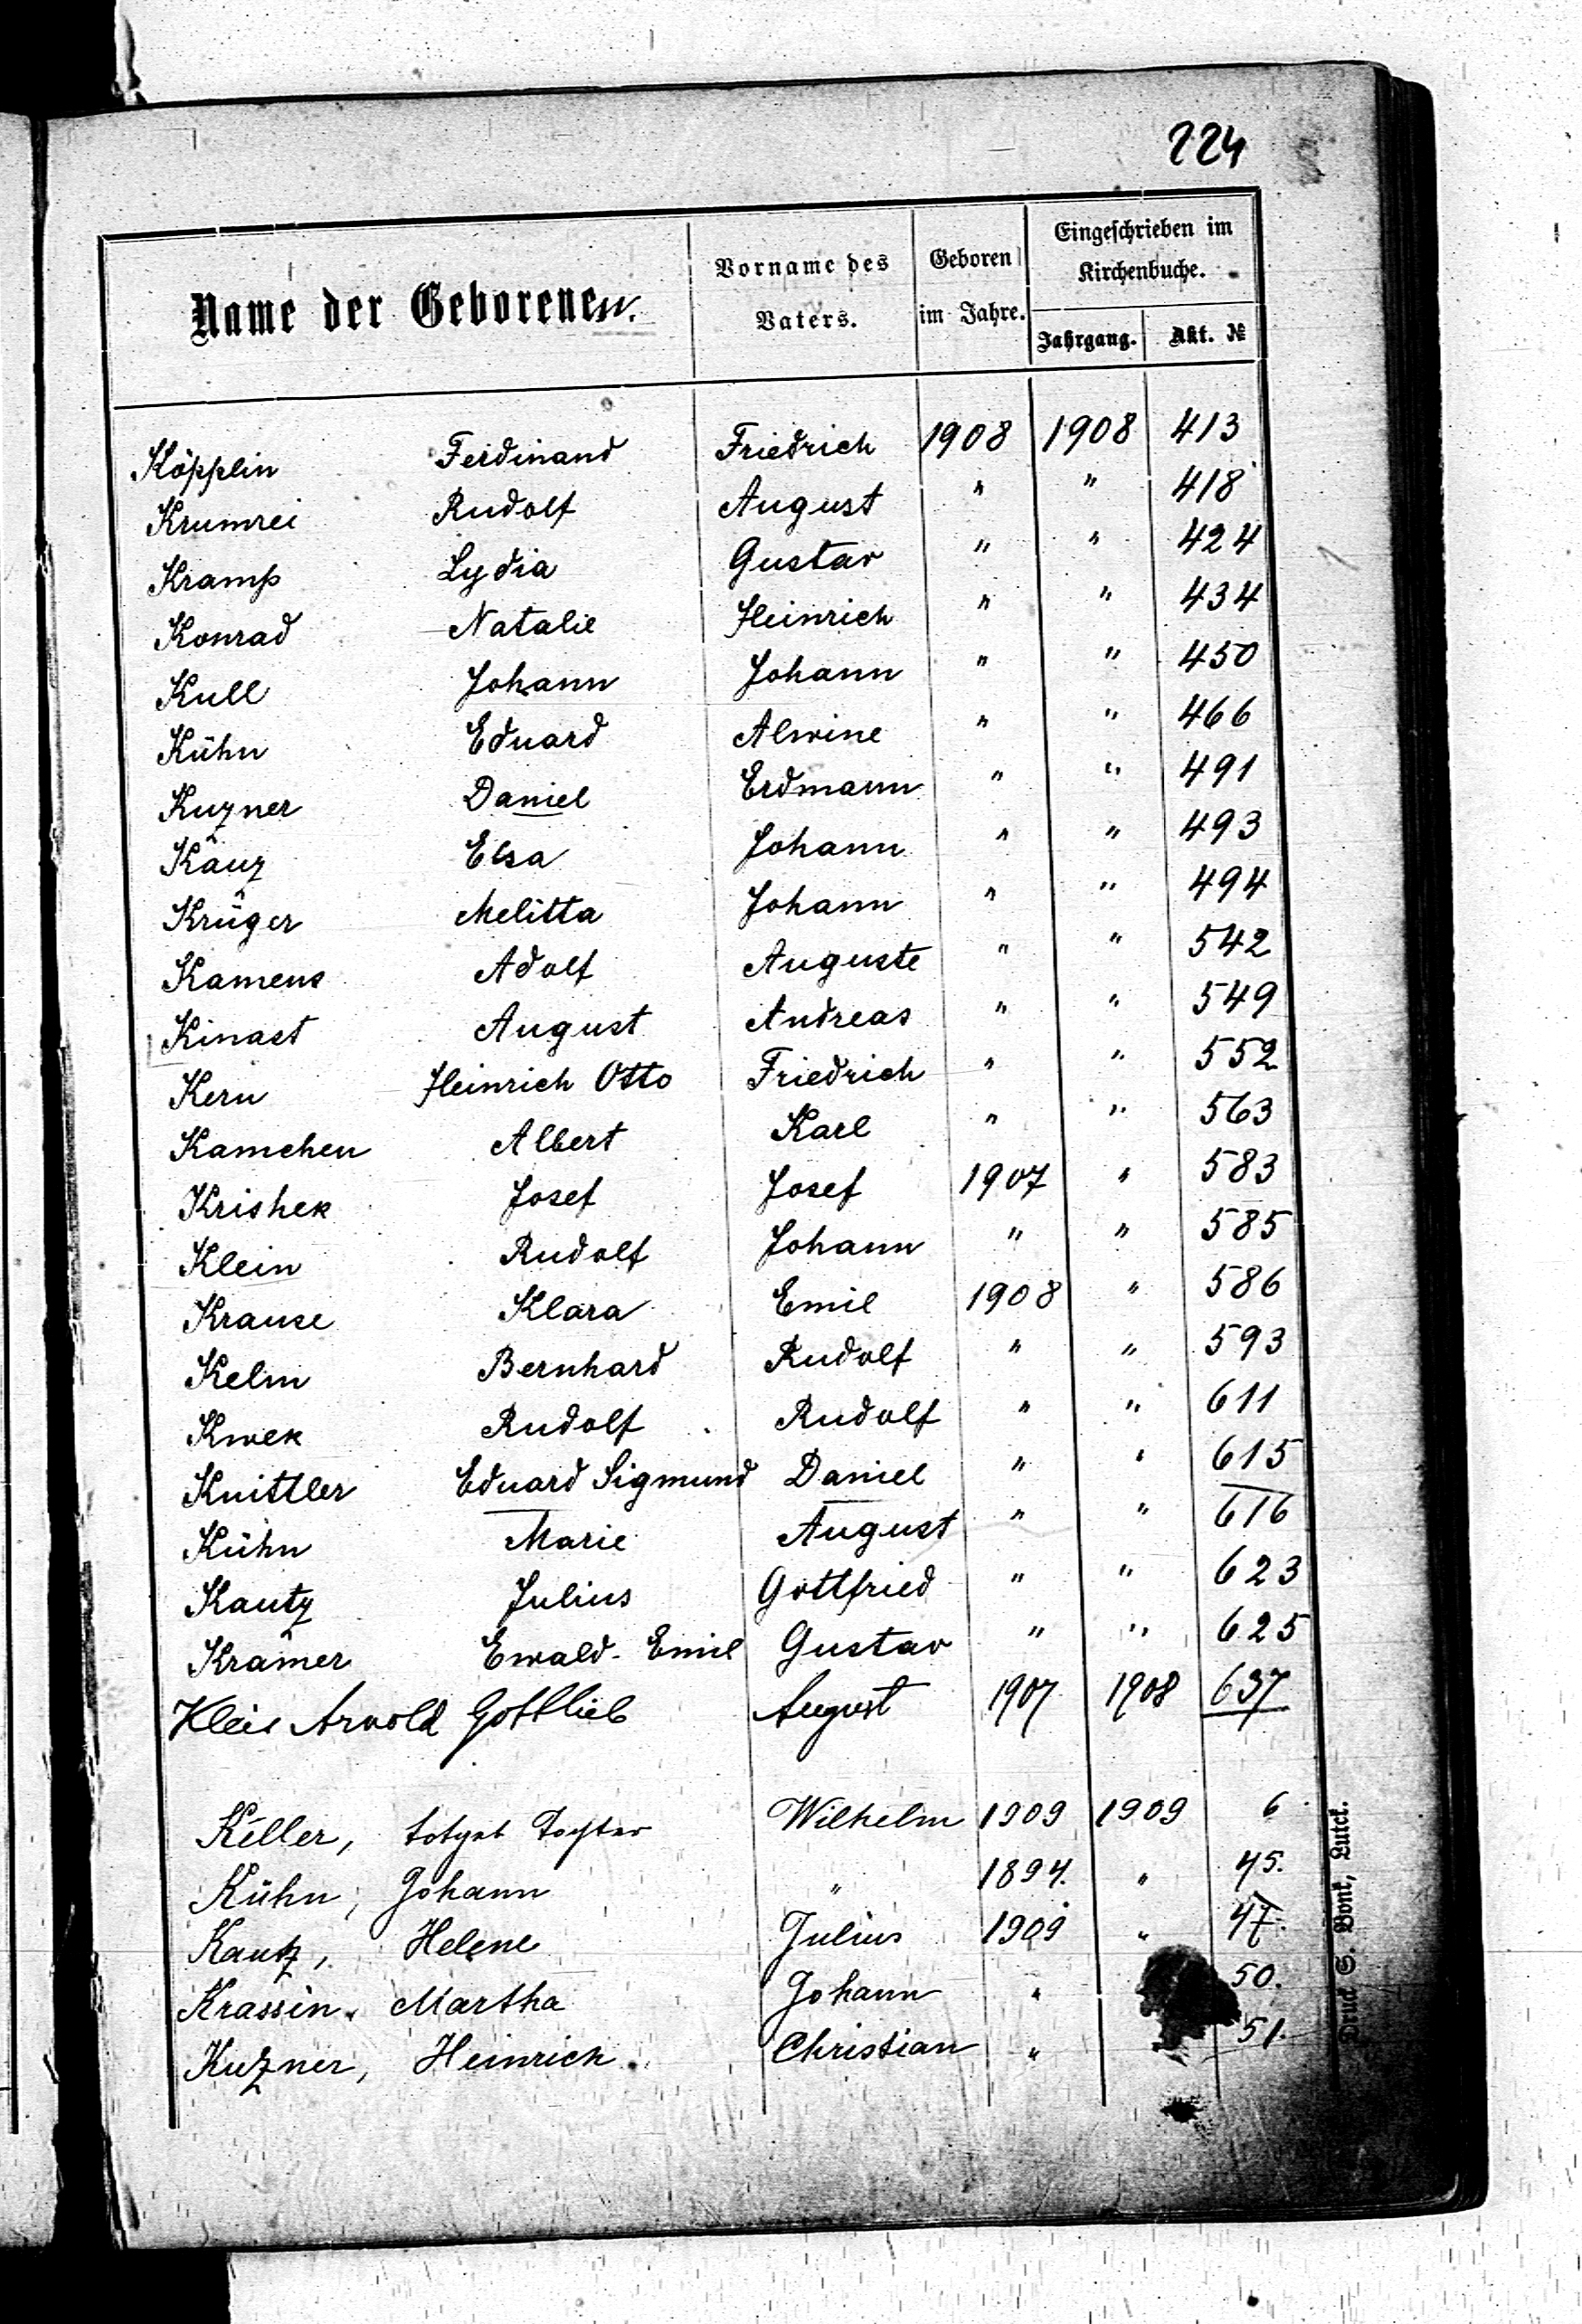 224
Name der Geborenen. Vorname des Vaters. Geboren im Jahre. Eingeschrieben im Kirchenbuche.
Jahrgang. Akt. №
Köpplin Ferdinand Friedrich 1908 1908 413
Krumrei Rudolf August " " 418
Kramp Lydia Gustav " " 424
Konrad Natalie Heinrich " " 434
Kull Johann Johann " " 450
Kühn Eduard Alwine " " 466
Kuzner Daniel Erdmann " " 491
Käuz Elsa Johann " " 493
Krüger Melitta Johann " " 494
Kamens Adolf Auguste " " 542
Kinast August Andreas " " 549
Kern Heinrich Otto Friedrich " " 552
Kamchen Albert Karl " " 563
Krishek Josef Josef 1907 " 583
Klein Rudolf Johann " " 585
Krause Klara Emil 1908 " 586
Kelm Bernhard Rudolf " " 593
Kwek Rudolf Rudolf " " 611
Knittler Eduard Sigmund Daniel " " 615
Kühn Marie August " " 616
Kautz Julius Gottfried " " 623
Krämer Ewald-Emil Gustav " " 625
Kleis Arnold Gottlieb August 1907 1908 637
Keller, totgeb Tochter Wilhelm 1909 1909 6
Kühn, Johann " 1894. " 45.
Kautz, Helene Julius 1909 " 47.
Krassin. Martha Johann " 50.
Kuzner, Heinrich. Christian " 51.
Druck S. Bonk, Lutck.